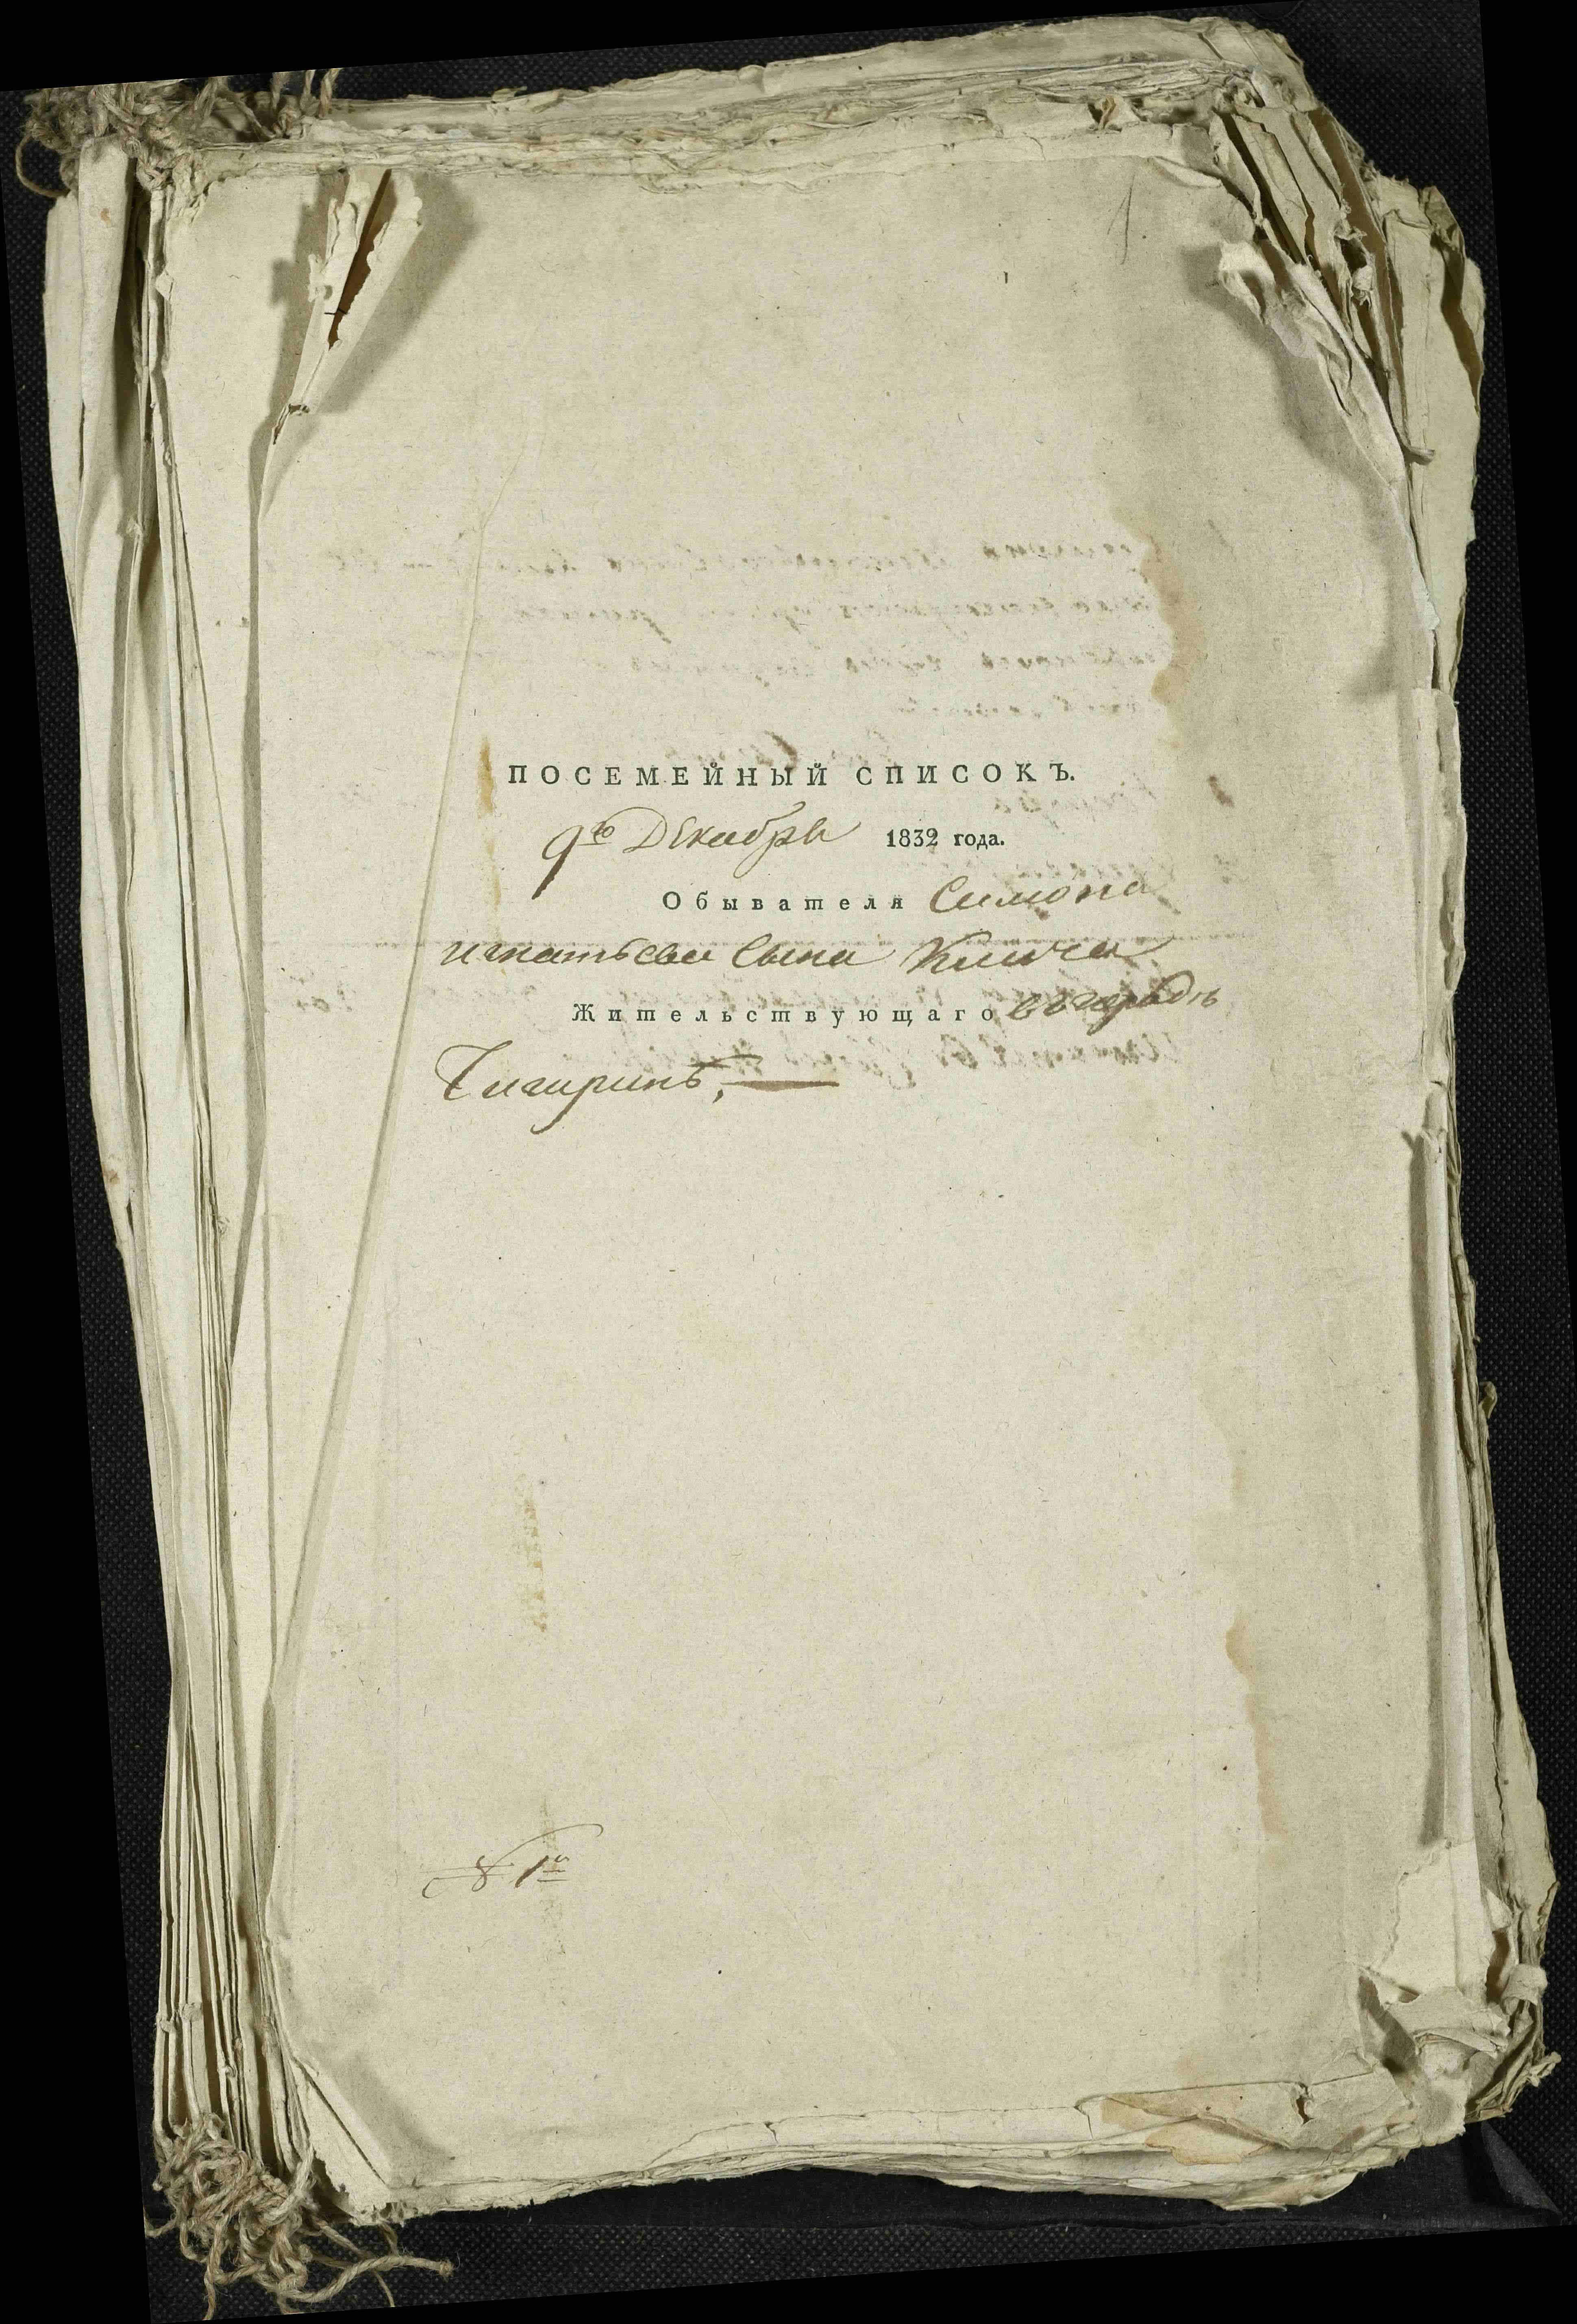 1
ПОСЕМЕЙНЫЙ СПИСОКЪ.
9го Декабря 1832 года.
Обывателя Симона
игнатьева Сына
Жительствующаго въ городѣ
Чигиринѣ,
№ 1й